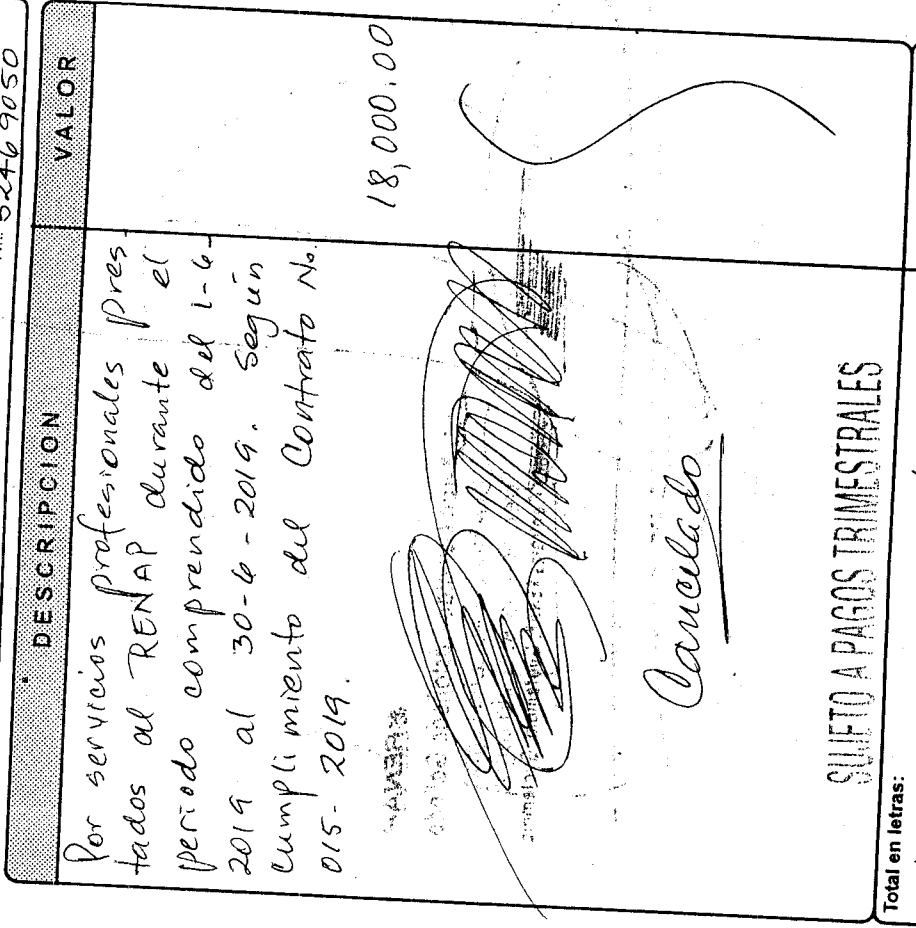 5246 9050
DESCRIPCION VALOR
Por servicios profesionales pres-
tados al RENAP durante el
periodo comprendido del 1-6-
2019 al 30-6-2019. Según
cumplimiento del Contrato No.
015-2019.
18,000.00
RENAP
Cancelado
SUJETO A PAGOS TRIMESTRALES
Total en letras: